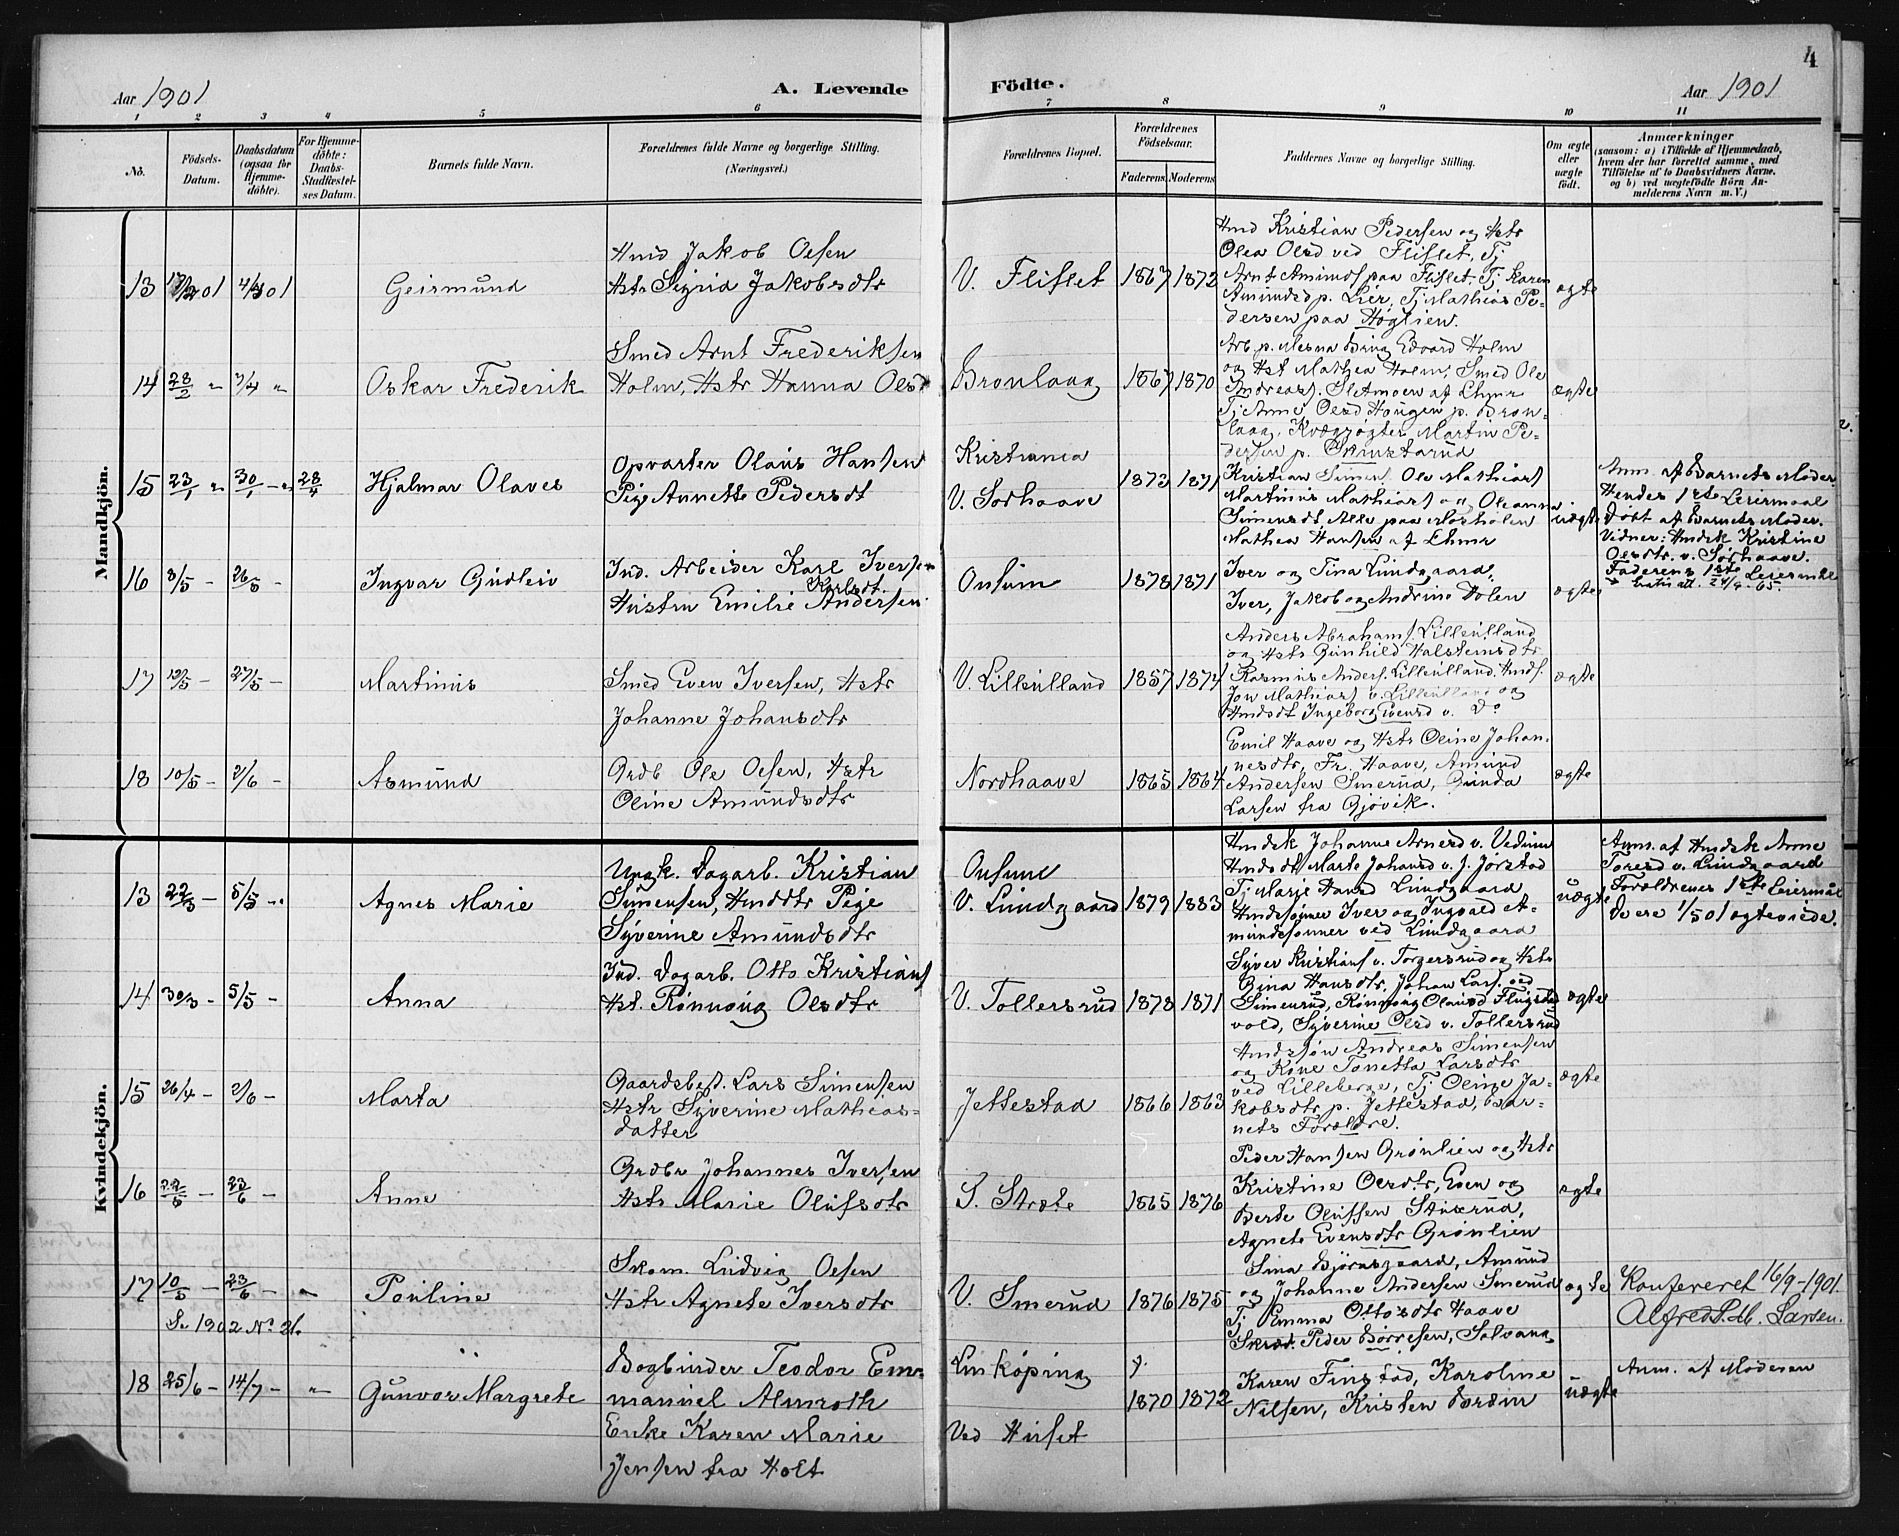 4
Aar 1901
A. Levende
Födte.
Aar 1901
1 2 3 4 5 6 7 8 9 10 11
No.
Födsels-
Datum.
Daabsdatum
(ogsaa for
Hjemme-
döbte).
For Hjemme-
döbte:
Daabs-
Stadfæstel-
ses Datum.
Barnets fulde Navn.
Forældrenes fulde Navne og borgerlige Stilling.
(Næringsvei.)
Forældrenes Bopæl.
Forældrenes
Födselsaar.
Faderens. Moderens.
Faddernes Navne og borgerlige Stilling.
Om ægte
eller
uægte
födt.
Anmærkninger
(saasom: a) i Tilfælde af Hjemmedaab,
hvem der har forrettet samme, med
Tilföielse af to Daabsvidners Navne.
og b) ved uægtefödte Börn An-
melderens Navn m. V.)
Mandkjön.
13 01 01
Geirmund
Hmd Jakob Olsen
Hstr Sigrid Jakobsdtr
V. Fliflet
1867 1872
Hmd Kristian Pedersen og Hstr
Olea Olsd ved Fliflet, Tj
Arnt Amunds paa Fliflet, Tj Karen
Amundsd p. Lier, Tj Mathias Pe-
dersen paa Høglien.
ægte
14 28/2 "
Oskar Frederik
Smed Arnt Frederiksen
Holm, Hstr Hanna Olsd
Bronlaag
1867 1870
Arb p. Mesna Brug Edvard Holm
og Hst Mathea Holm, Smed Ole
Andreass. Sletmoen af Lhmr
Tj Anne Olsd Haugen p. Bron-
laag, Kvægrøgter Martin Pe-
dersen p. Skinstarud
ægte
15 23/1 " 30/1 - " 28/4
Hjalmar Olaves
Opvarter Olaus Hansen
Pige Annette Pedersdt
Kristiania
V. Sørhaave
1873 1871
Kristian Simens. Ole Mathias
Martinus Mathias og Oleanna
Simensdt. Alle paa Mosholen
Mathea Hansen af Lhmr
uægte
Anm. af Barnets Moder.
Hendes 1ste Leiermaal
Døbt af Barnets Moder.
Vidner: Hmdsk Kristine
Olsdtr. v. Sørhaave.
Faderens 1ste Leiermaal
16 8/5 - 26/5 -
Ingvar Gudleiv
Ind. Arbeider Karl Iversen
Karlsdt.
Hustru Emilie Andersen.
Onsum
1878 1871
Iver og Tina Lundgaard,
Iver, Jakob og Andrine Holen
ægte
17 27/5 -
Martinus
Smed Even Iversen, Hstr
Johanne Johansdtr
V. Lilleulland
1857 1874
Anders Abrahams. Lilleulland
og Hstr Gunhild Halsteinsdtr
Rasmus Anders. Lilleulland. Hmds.
Jon Mathias v. Lilleulland og
Hmdsdt Ingeborg Evensd v. Do
ægte
18 10/5 - 2/6 -
Asmund
Grdb Ole Olsen, Hstr
Oline Amundsdtr
Nordhaave
1865 1864
Emil Haave og Hstr Oline Johan-
nesdtr, Fr. Haave, Amund
Andersen Smerud, Gunda
Larsen fra Gjøvik.
ægte
Kvindekjön.
13 22/3 - 5/5 - "
Agnes Marie
Ungk. Dagarb. Kristian
Simensen, Hmddtr Pige
Syverine Amundsdtr
Onsum
V. Lundgaard
1879 1883
Hmdsk Johanne Arnesd v. Vedum
Hmdsdt Marte Johansd v. J. Jørstad
Tj Marje Hansd Lundgaard
Hmdssønner Iver og Ingvald A-
mundssønner ved Lundgaard
uægte
Anm. af Hmdsk Anne
Toresd v. Lundgaard
Forældrenes 1ste Leiermaal
De ere 1/5 01 ægteviede.
14 30/3 - 5/5 -
Anna
Ind. Dagarb. Otto Kristians
Hst. Rønnoug Olsdtr
V. Tollersrud
1878 1871
Syver Kristians v. Torgersrud og Hstr
Gina Hansdtr. Johan Lars. ved
Simenrud, Rønnoug Olausd Flugstad
vold, Syverine Olsd v. Tollersrud
ægte
15 26/4 - 2/6 -
Marta
Gaardsbest. Lars Simensen
Hstr Syverine Mathias-
datter
Jettestad
1866 1863
Hmdssøn Andreas Simensen
og Kone Tonetta Larsdtr
ved Lilleberge, Tj Oline Ja-
kobsdtr p. Jettestad, Bar-
nets Forældre.
ægte
16 22/5 - 23/6 -
Anne
Grdbr Johannes Iversen
Hstr Marie Olufsdtr
S. Stræte
1865 1876
Peder Hansen Grønlien og Hstr
Kristine Olsdtr, Even og
Berte Olufsen Stuerud,
Agnete Evensdtr Grønlien
ægte
17 10/5 - 23/6 - "
Se 1902 No. 21.
Pouline
Skom. Ludvig Olsen
Hstr Agnete Iversdtr
V. Smerud
1876 1875
Sina Bjørnsgaard, Amund
og Johanne Andersen Smerud
Tj Emma Ottosdtr Haave
Skræd. Peder Børresen, Solvang
ægte
Konfereret 16/9-1901.
Alfred S. M. Larsen.
18 25/6 - 14/7 - "
Gunvor Margrete
Bogbinder Teodor Em-
manuel Almroth
Enke Karen Marie
Jensen fra Holt
Linköping
Ved Hirset
1870 1872
Karen Finstad, Karoline
Nilsen, Kristen Bredin
uægte
Anm. af Moderen